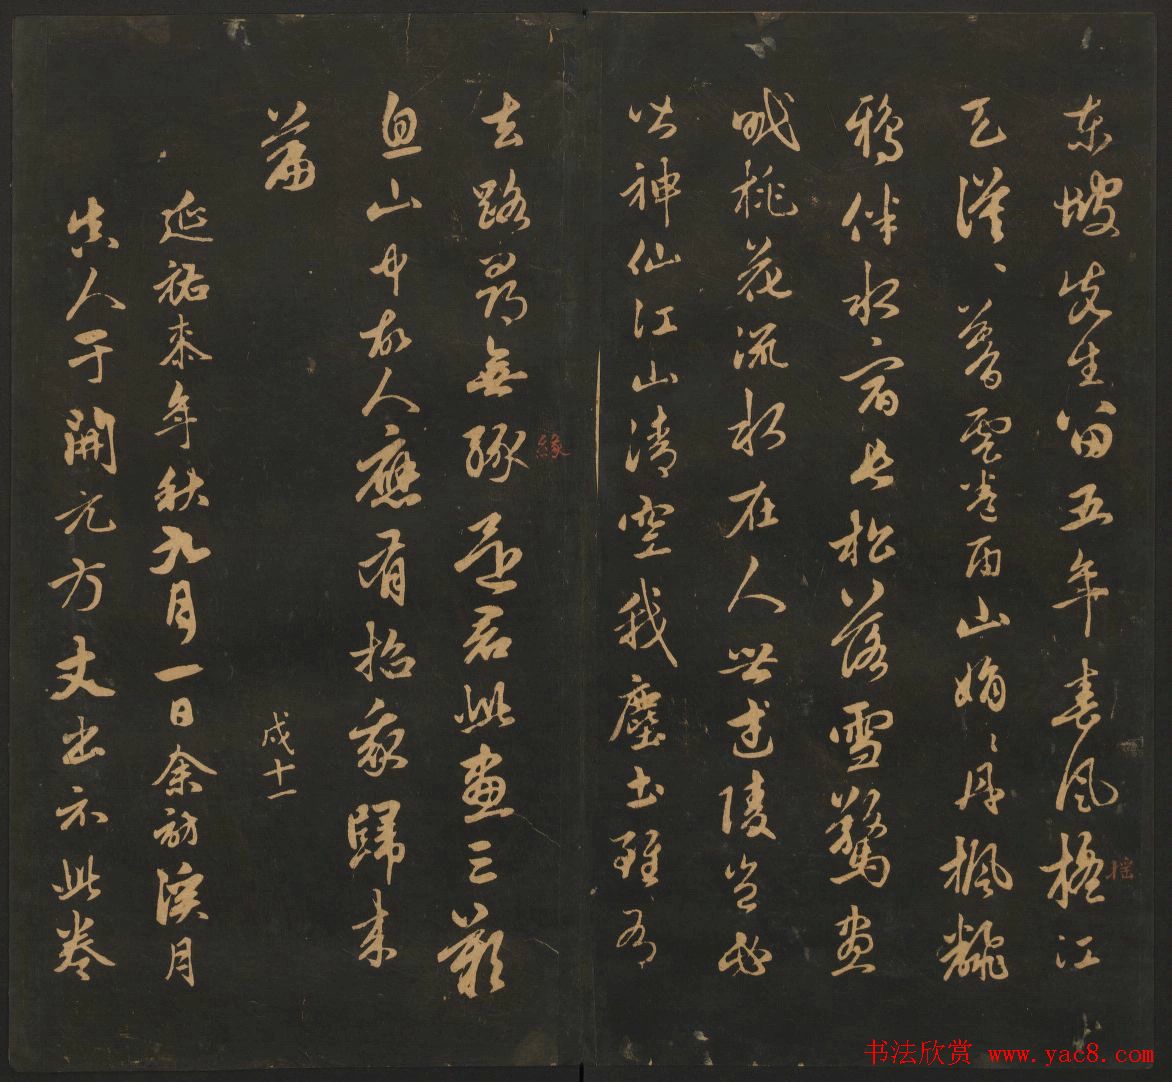 東坡先生留五年春風搖江
天漠〻暮雲卷雨山娟〻丹楓翻
鴉伴水宿長松落雪驚晝
眠桃花流水在人世武陵豈必
皆神仙江山清空我塵土雖有
去路尋無緣還君此畫三歎
息山中故人應有招我歸來
篇
戊十一
延祐桼年秋九月一日余訪溪月
真人于開元方丈出示此卷
搖
緣
书法欣赏 www.yac8.com